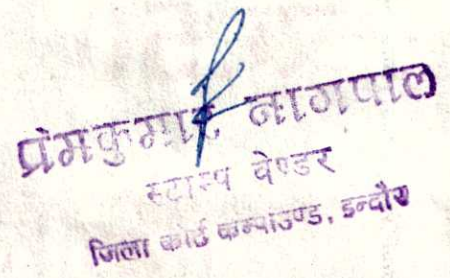 प्रेमकुमार नागपाल
स्टाम्प वेण्डर
जिला कोर्ट कम्पाउण्ड, इन्दौर